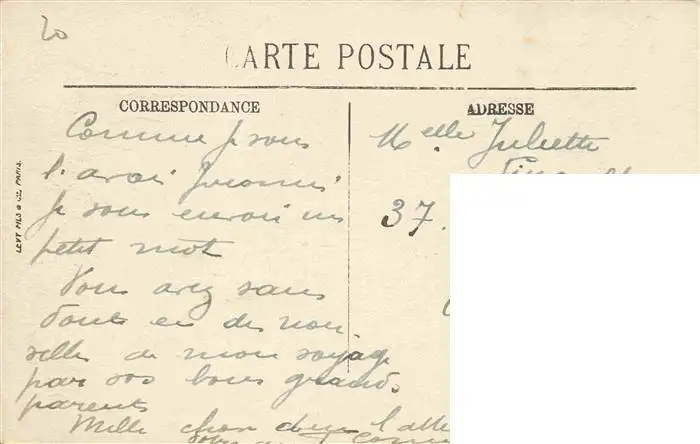 20
CARTE POSTALE
CORRESPONDANCE
ADRESSE
LEVY FILS & Cie, PARIS.
Comme je vous
l'avai promi
je vous envoi un
petit mot
Vous avez sans
doute eu des nou
velles de mon voyage
par vos bons grands
parents
Mille chose dem l'atte
Melle Juliette
37.